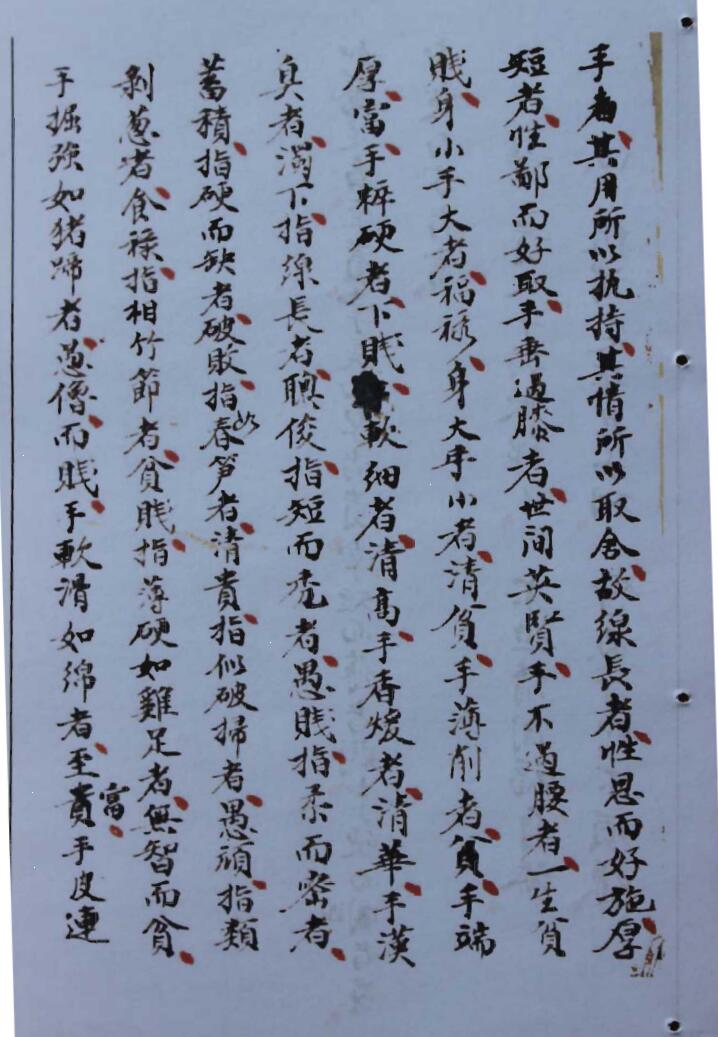 手者、其用所以执持、其情所以取舍、故線長者、性思而好施、厚
短者、性鄙而好取、手垂過膝者、世间英賢、手不過腰者、一生貧
賎、身小手大者、福禄、身大手小者、清貧、手薄削者、貧、手端
厚、富、手粹硬者、下賎、軟细者、清高、手香煖者、清華、手漢
臭者、濁下、指線長者、聰俊、指短而禿者、愚賎、指柔而密者、
蓄積、指硬而缺者、破敗、指如春笋者、清貴、指似破掃者、愚頑、指類
剝葱者、食禄、指相竹節者、貧賎、指薄硬如雞足者、無智而貧、
手掘強如猪蹄者、愚僂而賎、手軟滑如綿者、至貴富、手皮連